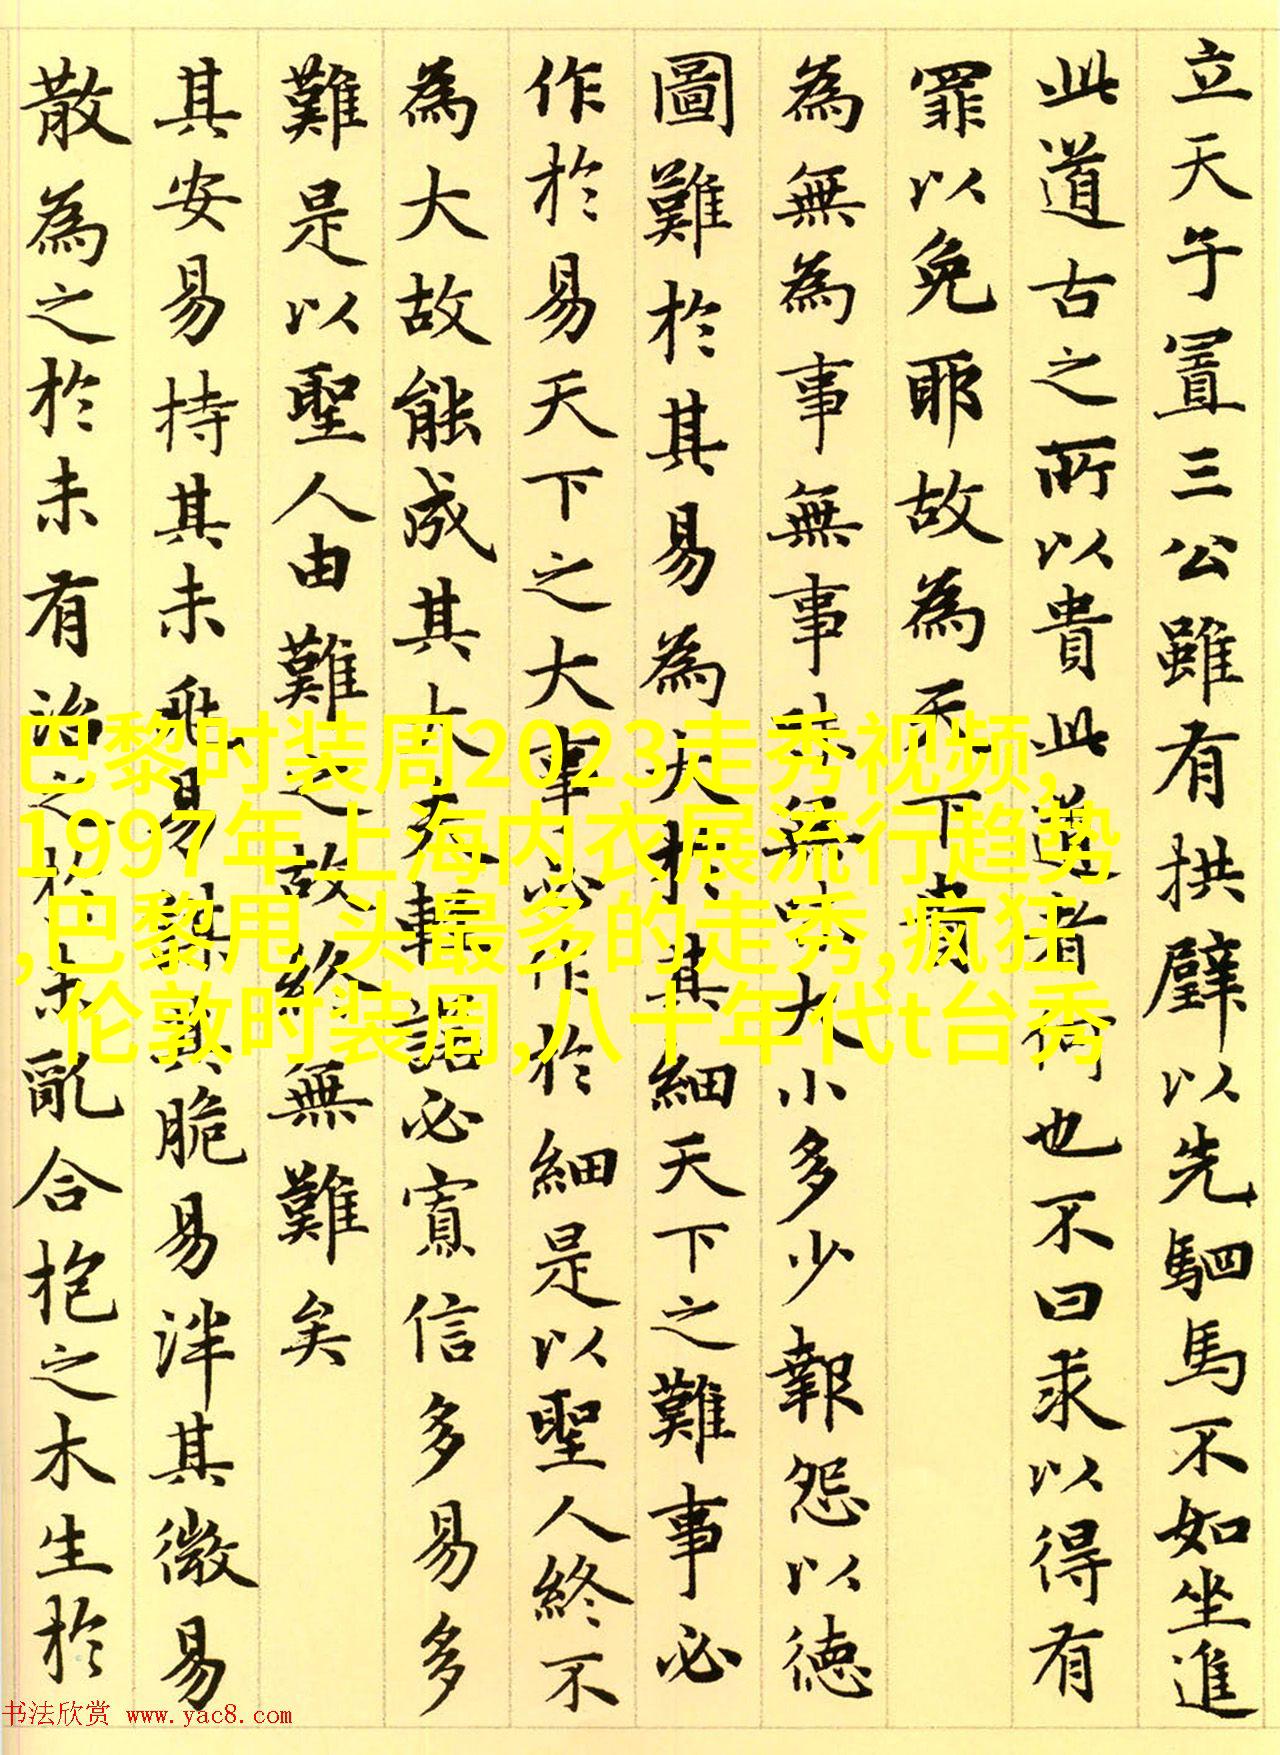 立天子置三公雖有拱璧以先駟馬不如坐進
此道古之所以貴此道者何也不曰求以得有
罪以免耶故為天下貴
為無為事無事味無味大小多少報怨以德
圖難於其易為大於其細天下之難事必
作於易天下之大事必作於細是以聖人終不
為大故能成其大夫輕諾必寡信多易多
難是以聖人由難之故終無難矣
其安易持其未兆易謀其脆易泮其微易
散為之於未有治之於未亂合抱之木生於
巴黎时装周2023走秀视频,
1997年上海内衣展流行趋势
,巴黎甩 头最多的走秀,疯狂
伦敦时装周,八十年代t台秀
书法欣赏 www.yac8.com